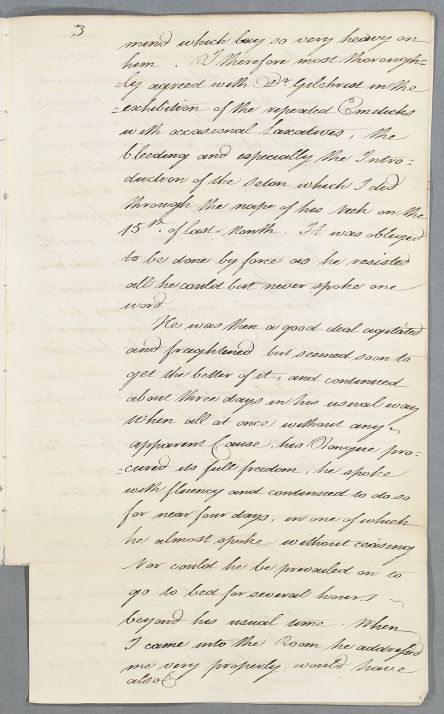 3
mind which lay so very heavy on
him . I therefore most thorough-
-ly agreed with Dr Gilchrist in the
exhibition of the repeated Emeticks
with occasional Laxatives, the
bleeding and especially the Intro-
duction of the Seton which I did
through the nape of his Neck on the
15th. of last Month. It was obliged
to be done by force as he resisted
all he could but never spoke one
word
He was then a good deal agitated
and freightened but seemed soon to
get the better of it, and continued
about three days in his usual way
When all at once without any
apparent Cause, his Tongue pro-
-cured its full freedom, he spoke
with fluency and continued to do so
for near four days, in one of which
he almost spoke without ceasing
Nor could he be prevailed on to
go to bed for several hours
beyond his usual time. When
I came into the Room he addressed
me very properly, would have
also